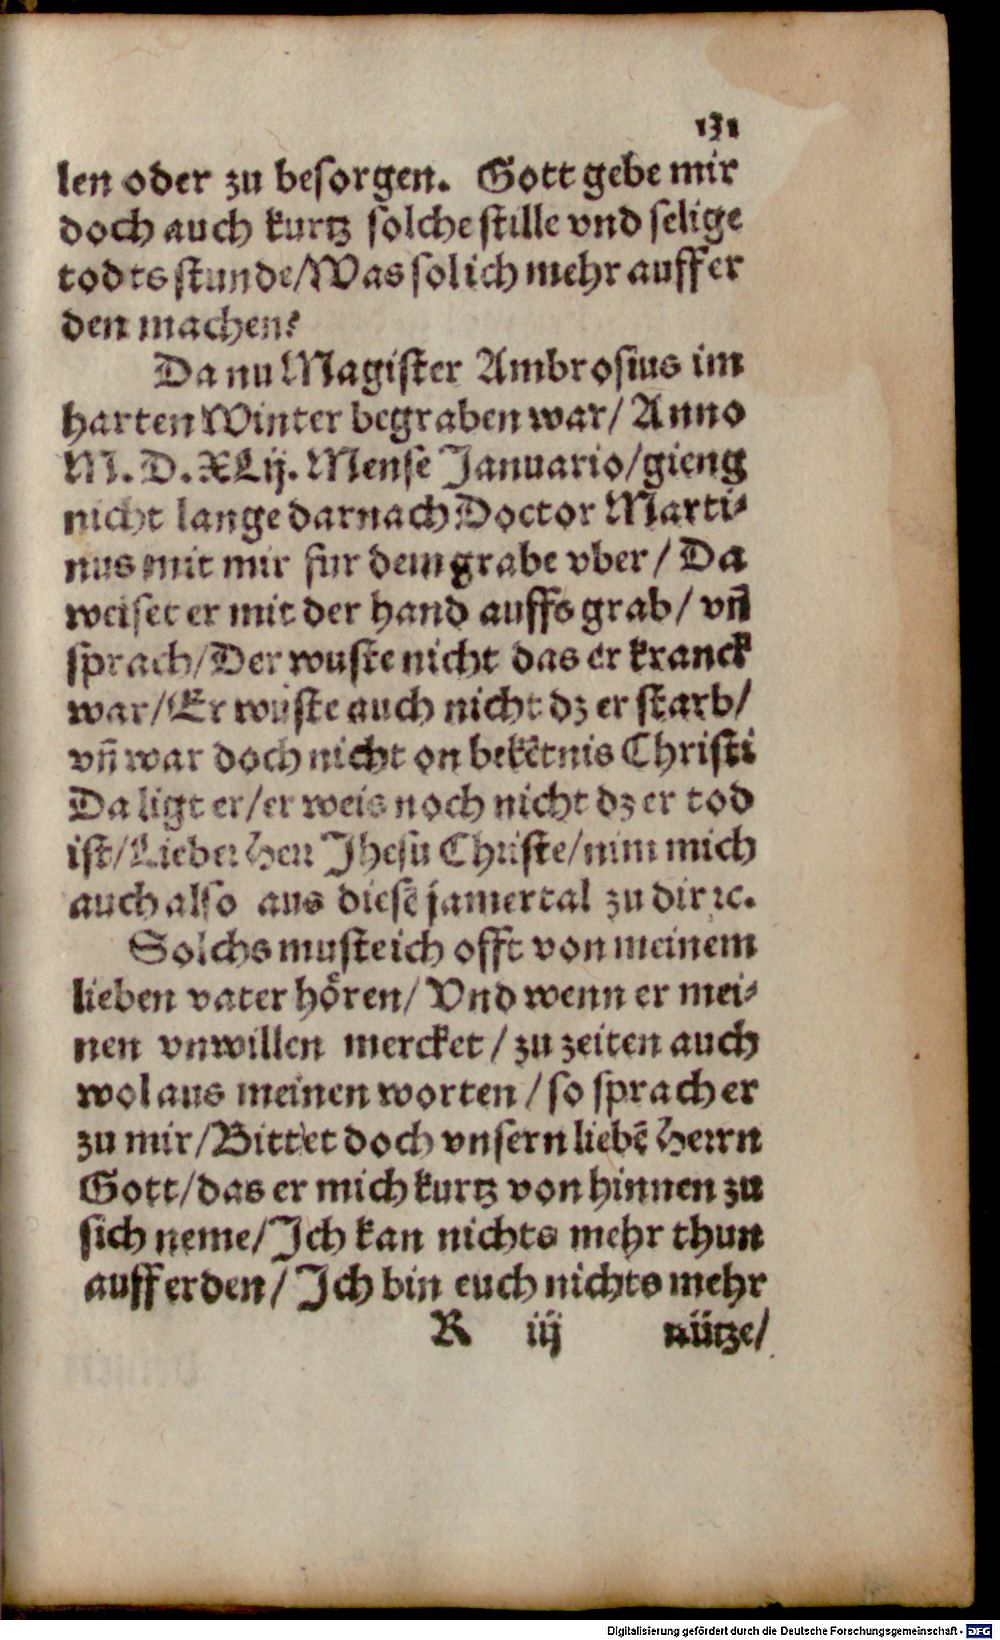 131
len oder zu besorgen. Gott gebe mir
doch auch kurtz solche stille vnd selige
todtsstunde/Was sol ich mehr auff er
den machen?
Da nu Magister Ambrosius im
harten Winter begraben war/ Anno
M. D. XLij. Mense Januario/gieng
nicht lange darnach Doctor Marti⸗
nus mit mir fur dem grabe vber/ Da
weiset er mit der hand auffs grab/ vñ
sprach/Der wuste nicht das er kranck
war/Er wuste auch nicht dz er starb/
vñ war doch nicht on bekẽtnis Christi
Da ligt er/er weis noch nicht dz er tod
ist/Lieber Herr Jhesu Christe/nim mich
auch also aus diesẽ jamertal zu dir ꝛc.
Solchs muste ich offt von meinem
lieben vater hören/ Vnd wenn er mei⸗
nen vnwillen mercket/ zu zeiten auch
wol aus meinen worten/ so sprach er
zu mir/Bittet doch vnsern liebẽ Herrn
Gott/das er mich kurtz von hinnen zu
sich neme/Jch kan nichts mehr thun
auff erden/ Jch bin euch nichts mehr
R iij nütze/
Digitalisierung gefördert durch die Deutsche Forschungsgemeinschaft - DFG